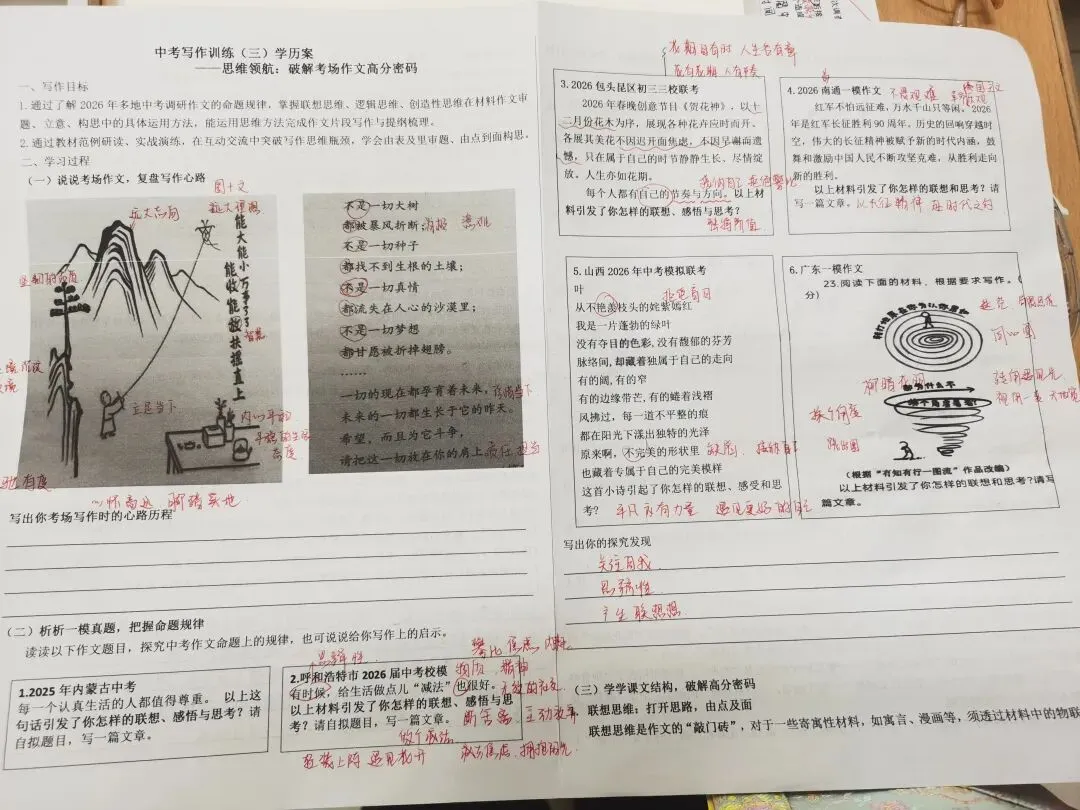 中考写作训练（三）学历案
——思维领航：破解考场作文高分密码
一、写作目标
1.通过了解 2026 年多地中考调研作文的命题规律，掌握联想思维、逻辑思维、创造性思维在材料作文审
题、立意、构思中的具体运用方法，能运用思维方法完成作文片段写作与提纲梳理。
2.通过教材范例研读、实战演练，在互动交流中突破写作思维瓶颈，学会由表及里审题、由点到面构思.
二、学习过程
（一）说说考场作文，复盘写作心路
图+文
远大志向
远大理想
能大能小万事了了
能收能放扶摇直上
智慧
立足当下
内心平和
心怀高远 脚踏实地
不是一切大树
都被暴风折断；消极 悲观
不是一切种子
都找不到生根的土壤；
不是一切真情
都流失在人心的沙漠里；
不是一切梦想
都甘愿被折掉翅膀。
……
一切的现在都孕育着未来，活满当下
未来的一切都生长于它的昨天。
希望，而且为它斗争，
请把这一切放在你的肩上 责任 担当
写出你考场写作时的心路历程
（二）析析一模真题，把握命题规律
读读以下作文题目，探究中考作文命题上的规律，也可说说给你写作上的启示。
思辨性
攀比 焦虑 内耗
1.2025 年内蒙古中考
每一个认真生活的人都值得尊重。 以上这
句话引发了你怎样的联想、感悟与思考？请
自拟题目，写一篇文章。
2.呼和浩特市 2026 届中考校模 物质 精神
有时候，给生活做点儿“减法”也很好。无效的社交
以上材料引发了你怎样的联想、感悟与思
考？请自拟题目，写一篇文章。 断舍离 主动放弃
做个减法
轻装上阵 遇见花开 减去焦虑 拥抱阳光
花期自有时 人生各有章
花有花期 人有节奏
3.2026 包头昆区初三三校联考
2026 年春晚创意节目《贺花神》，以十
二月份花木为序，展现各种花卉应时而开、
各展其美花不因迟开而焦虑，不因早谢而遗
憾，只在属于自己的时节静静生长、尽情绽
放。人生亦如花期。
每个人都有自己的节奏与方向。以上材
料引发了你怎样的联想、感悟与思考？
4.2026 南通一模作文 不畏艰难
红军不怕远征难，万水千山只等闲。2026
年是红军长征胜利 90 周年，历史的回响穿越时
空，伟大的长征精神被赋予新的时代内涵，鼓
舞和激励中国人民不断攻坚克难，从胜利走向
新的胜利。
以上材料引发了你怎样的联想和思考？请
写一篇文章。以长征精神 赴时代之约
5.山西 2026 年中考模拟联考
叶
从不艳羡枝头的姹紫嫣红 拒绝盲目
我是一片蓬勃的绿叶
没有夺目的色彩，没有馥郁的芬芳
脉络间，却藏着独属于自己的走向
有的阔，有的窄
有的边缘带芒，有的蜷着浅褶
风拂过，每一道不平整的痕
都在阳光下漾出独特的光泽
原来啊，不完美的形状里 缺憾 接纳自己
也藏着专属于自己的完美模样
这首小诗引起了你怎样的联想、感受和思
考？ 平凡亦有力量 遇见更好的自己
6.广东一模作文
23.阅读下面的材料，根据要求写作。（
分）
同心圆
跳出圈
（根据“有知有行一图流”作品改编）
以上材料引发了你怎样的联想和思考？请写
篇文章。
写出你的探究发现
关注自我
思辨性
产生联想
（三）学学课文结构，破解高分密码
联想思维：打开思路，由点及面
联想思维是作文的“敲门砖”，对于一些寄寓性材料，如寓言、漫画等，须透过材料中的物联